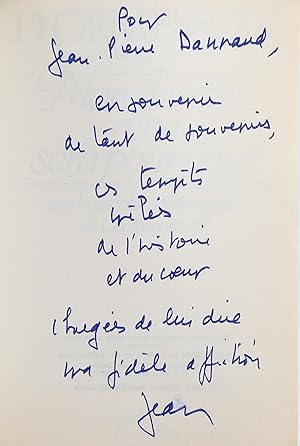 Pour
Jean-Pierre Dannaud,
en souvenir
de tant de souvenirs,
ces tempêtes
mêlées
de l'histoire
et du cœur
chargées de lui dire
ma fidèle affection
Jean